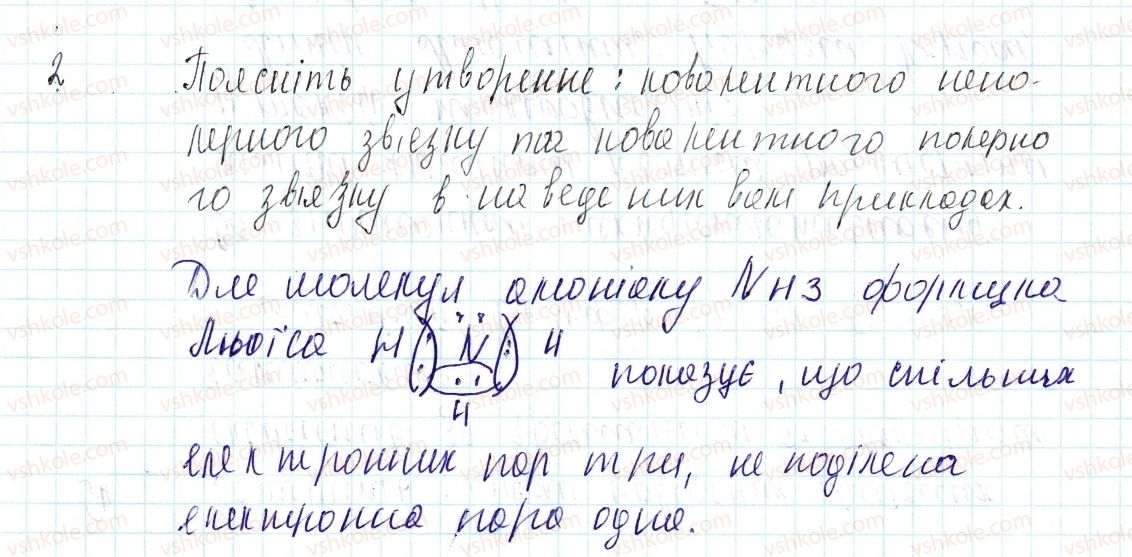 2 Поясніть утворенне: ковалентного непо-
лярного зв'язку та ковалентного полярно
го звіязку в наведених вами прикладах.
Для молекул амоніаку NH3 формула
Льюїса H N H
показує, що спільних
H
електронних пар три, не поділена
електронна пара одна.